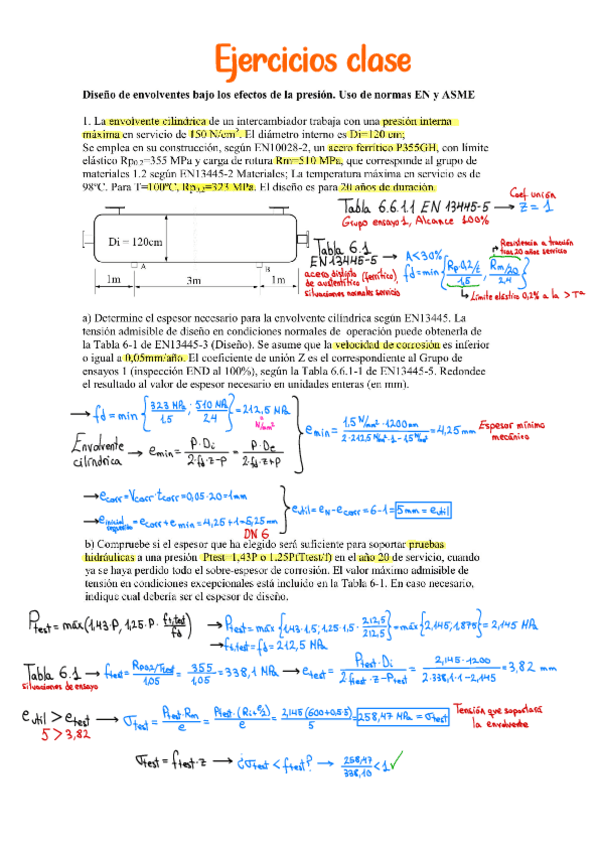 Ejercicios clase
Diseño de envolventes bajo los efectos de la presión. Uso de normas EN y ASME
1. La envolvente cilíndrica de un intercambiador trabaja con una presión interna
máxima en servicio de 150 N/cm². El diámetro interno es Di=120 cm;
Se emplea en su construcción, según EN10028-2, un acero ferrítico P355GH, con límite
elástico Rp0.2=355 MPa y carga de rotura Rm=510 MPa, que corresponde al grupo de
materiales 1.2 según EN13445-2 Materiales; La temperatura máxima en servicio es de
98ºC. Para T=100ºC, Rp0.2=323 MPa. El diseño es para 20 años de duración.
Tabla 6.6.1.1 EN 13445-5 → z = 1
Coef unión
Grupo ensayo 1, Alcance 100%
Di = 120cm
A
B
1m
3m
1m
Tabla 6.1
EN 13445-5 → A<30%
acero distinto
de austenítico (ferrítico),
situaciones normales servicio
fd=min{Rp0,2/t / 1,5 ; Rm/20 / 2,4}
Resistencia a tracción
tras 20 años servicio
Límite elástico 0,2% a la > Tª
a) Determine el espesor necesario para la envolvente cilíndrica según EN13445. La
tensión admisible de diseño en condiciones normales de operación puede obtenerla de
la Tabla 6-1 de EN13445-3 (Diseño). Se asume que la velocidad de corrosión es inferior
o igual a 0,05mm/año. El coeficiente de unión Z es el correspondiente al Grupo de
ensayos 1 (inspección END al 100%), según la Tabla 6.6.1-1 de EN13445-5. Redondee
el resultado al valor de espesor necesario en unidades enteras (en mm).
→ fd = min {323 MPa / 1.5 ; 510 MPa / 2.4} = 212,5 MPa
N/mm²
Envolvente
cilíndrica → emin = P·Di / 2·fd·z-P = P·De / 2·fd·z+P
emin = 1,5 N/mm² · 1200mm / 2·212,5 N/mm²·1-1,5 N/mm² = 4,25 mm
Espesor mínimo
mecánico
→ ecorr = Vcorr·tcorr = 0,05·20 = 1mm
→ einicial = ecorr + emin = 4,25 + 1 = 5,25 mm
DN 6
eutil = eN - ecorr = 6-1 = 5mm = eutil
b) Compruebe si el espesor que ha elegido será suficiente para soportar pruebas
hidráulicas a una presión Ptest=1,43P o 1,25P(Ttest/f) en el año 20 de servicio, cuando
ya se haya perdido todo el sobre-espesor de corrosión. El valor máximo admisible de
tensión en condiciones excepcionales está incluido en la Tabla 6-1. En caso necesario,
indique cual debería ser el espesor de diseño.
Ptest = máx (1,43·P, 1,25·P· ft,test / fd) → Ptest = máx {1,43·1,5; 1,25·1,5· 212,5 / 212,5} = máx {2,145; 1,875} = 2,145 MPa
→ ft,test = fd = 212,5 MPa
Tabla 6.1 → ftest = Rp0,2/Ttest / 1,05 = 355 / 1,05 = 338,1 MPa → etest = Ptest·Di / 2·ftest·z-Ptest = 2,145·1200 / 2·338,1·1-2,145 = 3,82 mm
situaciones de ensayo
eutil > etest
5 > 3,82
→ σtest = Ptest·Rm / e = Ptest·(Ri+e/2) / e = 2,145(600+0,55) / 5 = 258,47 MPa = σtest
Tensión que soportará
la envolvente
σtest = ftest·z → ¿σtest < ftest? → 258,47 / 338,10 < 1 ✓